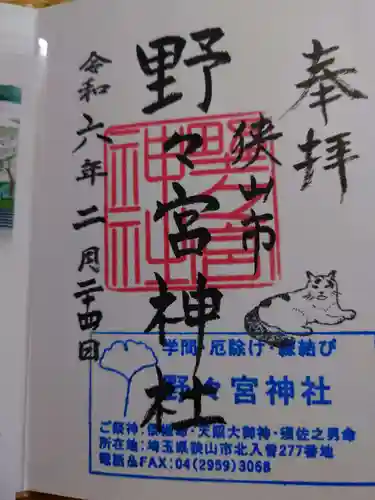 奉拝
狭山市
野々宮神社
令和六年二月二十四日
野々宮神社
学問・厄除け・縁結び
野々宮神社
ご祭神：・天照大御神・須佐之男命
所在地：埼玉県狭山市北入曽277番地
電話品FAX：04(2959)3068